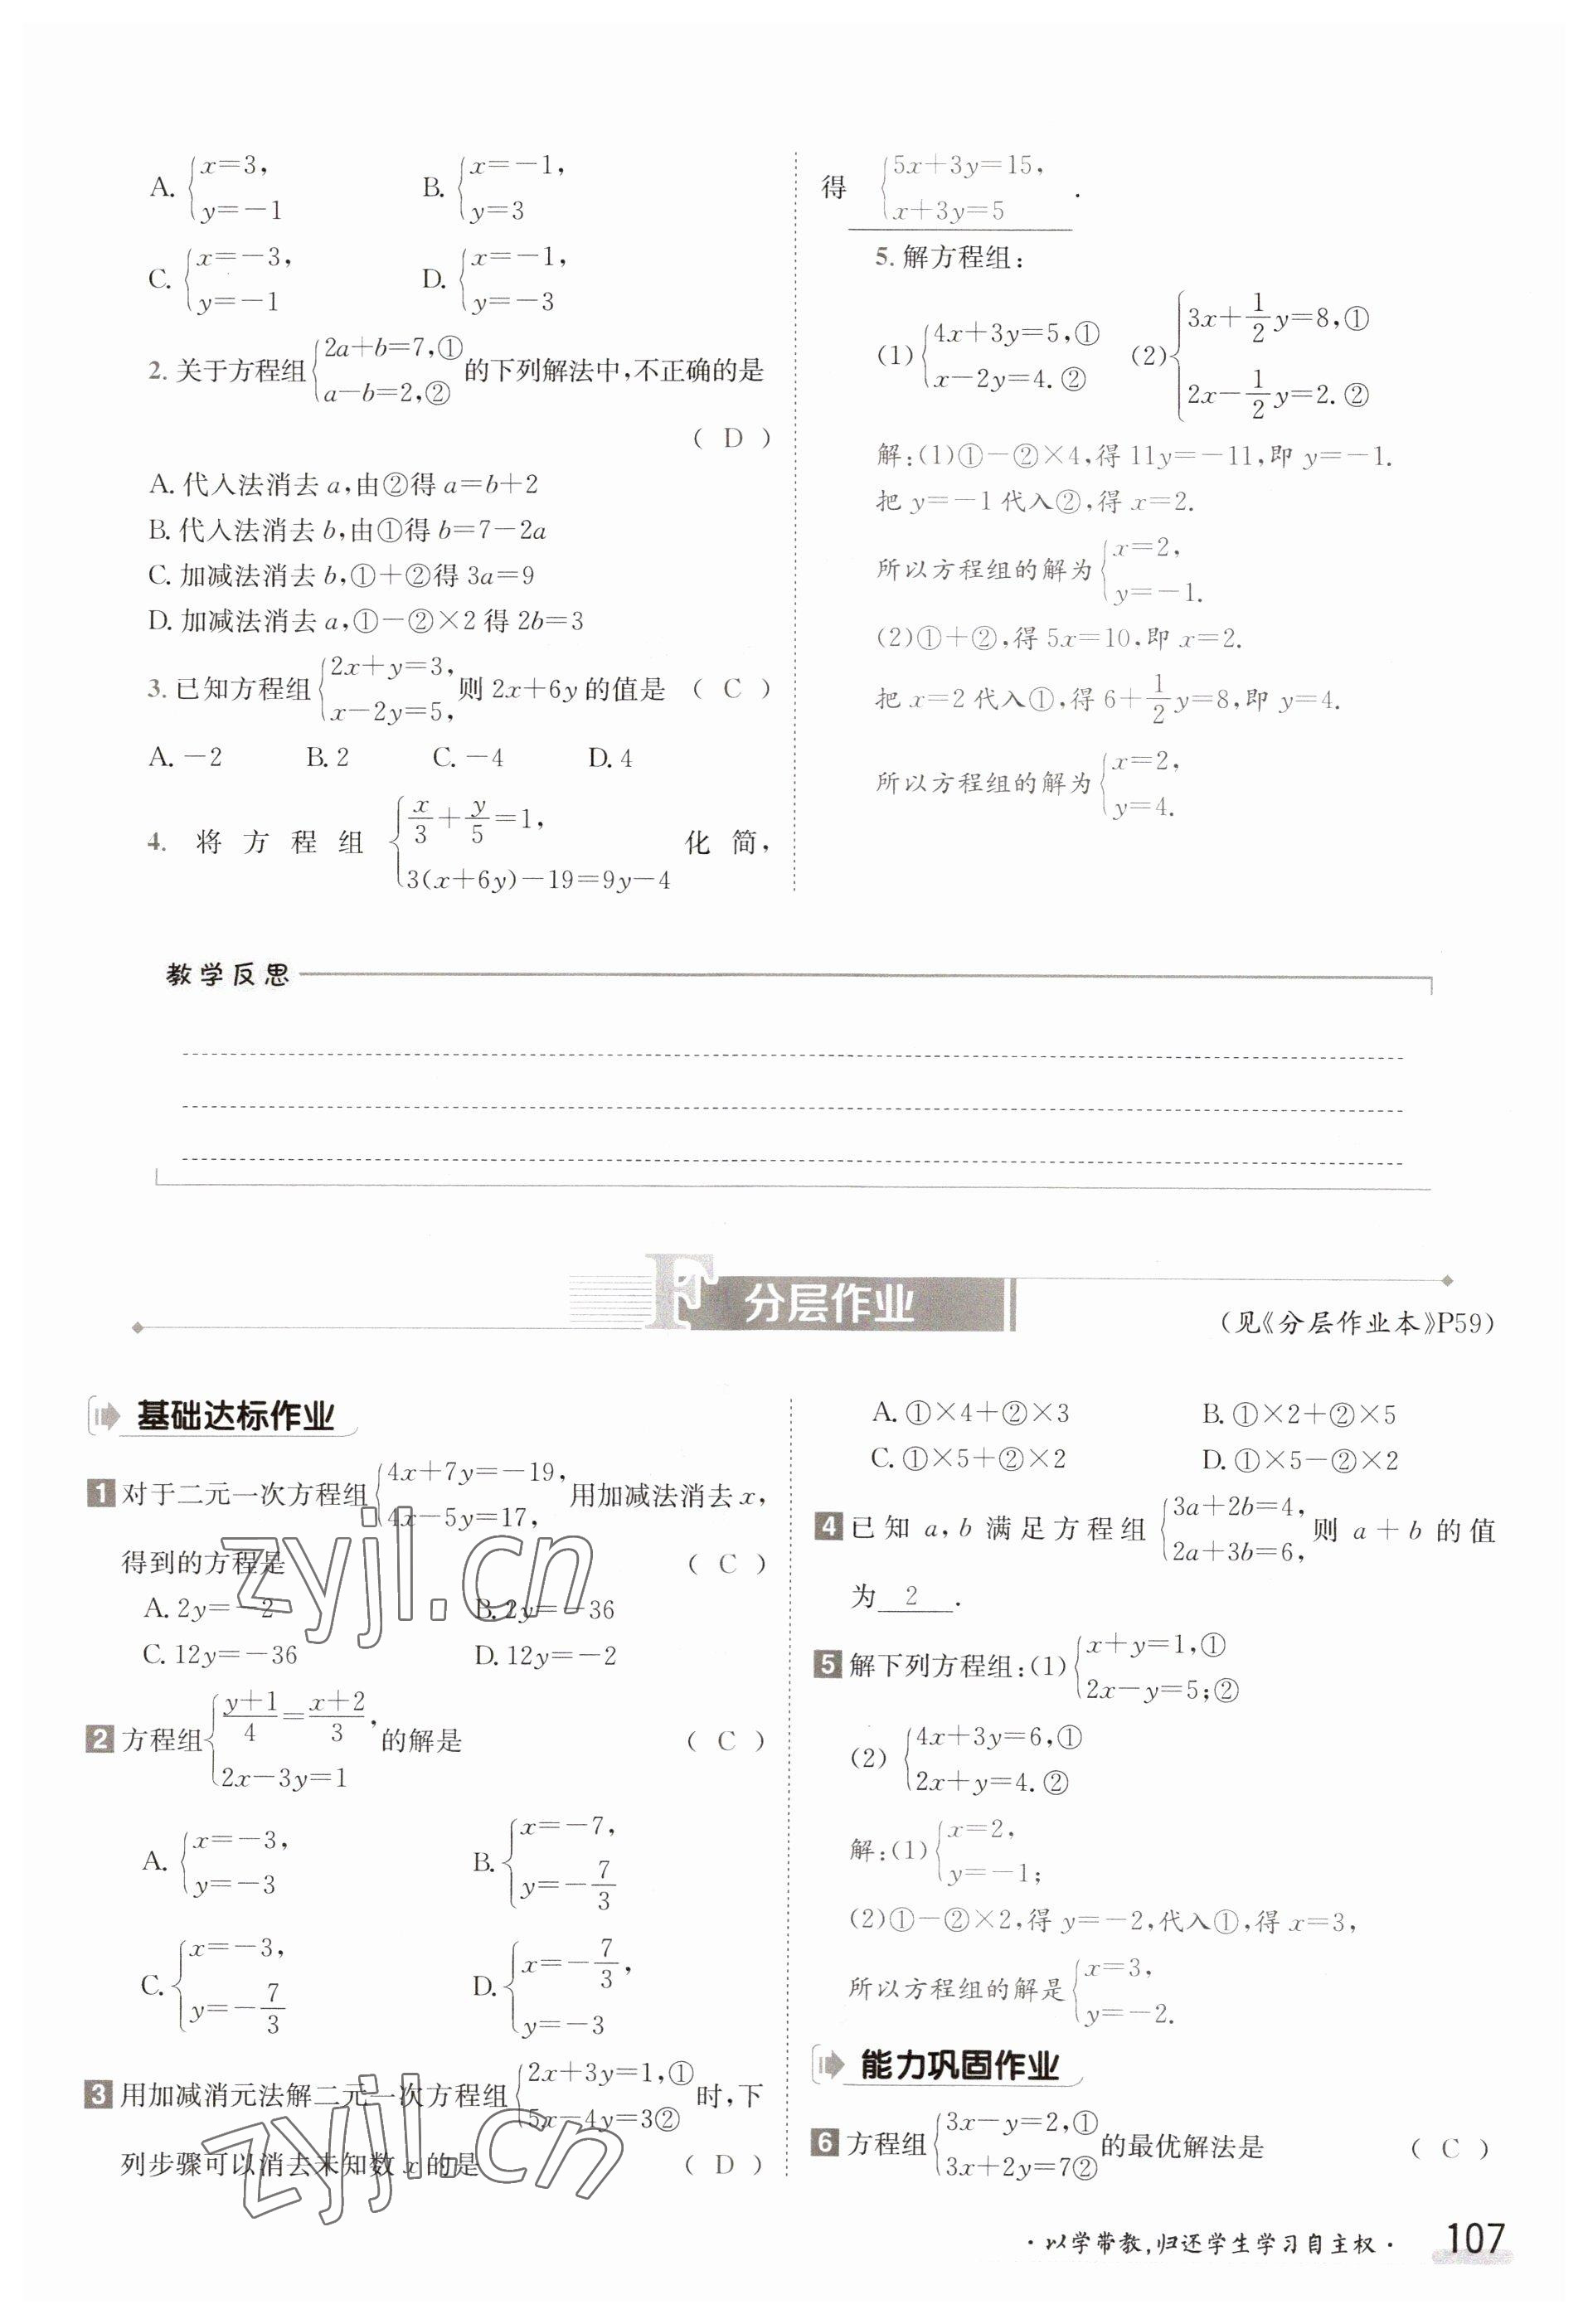 A. {x=3, y=-1
B. {x=-1, y=3
C. {x=-3, y=-1
D. {x=-1, y=-3
2. 关于方程组{2a+b=7,① a-b=2,②的下列解法中,不正确的是
( D )
A. 代入法消去 a,由②得 a=b+2
B. 代入法消去 b,由①得 b=7-2a
C. 加减法消去 b,①+②得 3a=9
D. 加减法消去 a,①-②×2 得 2b=3
3. 已知方程组{2x+y=3, x-2y=5,则 2x+6y 的值是 ( C )
A. -2 B. 2 C. -4 D. 4
4. 将方程组{x/3+y/5=1, 3(x+6y)-19=9y-4 化简,
得 {5x+3y=15, x+3y=5 .
5. 解方程组:
(1){4x+3y=5,① x-2y=4.② (2){3x+1/2y=8,① 2x-1/2y=2.②
解:(1)①-②×4,得 11y=-11,即 y=-1.
把 y=-1 代入②,得 x=2.
所以方程组的解为{x=2, y=-1.
(2)①+②,得 5x=10,即 x=2.
把 x=2 代入①,得 6+1/2y=8,即 y=4.
所以方程组的解为{x=2, y=4.
教学反思
F 分层作业
(见《分层作业本》P59)
基础达标作业
1 对于二元一次方程组{4x+7y=-19, 4x-5y=17,用加减法消去 x,
得到的方程是 ( C )
A. 2y=-2 B. 2y=-36
C. 12y=-36 D. 12y=-2
2 方程组{y+1/4=x+2/3, 2x-3y=1 的解是 ( C )
A. {x=-3, y=-3
B. {x=-7, y=-7/3
C. {x=-3, y=-7/3
D. {x=-7/3, y=-3
3 用加减消元法解二元一次方程组{2x+3y=1,① 5x-4y=3②时,下
列步骤可以消去未知数 x 的是 ( D )
A. ①×4+②×3 B. ①×2+②×5
C. ①×5+②×2 D. ①×5-②×2
4 已知 a,b 满足方程组{3a+2b=4, 2a+3b=6,则 a+b 的值
为 2 .
5 解下列方程组:(1){x+y=1,① 2x-y=5;②
(2) {4x+3y=6,① 2x+y=4.②
解:(1){x=2, y=-1;
(2)①-②×2,得 y=-2,代入①,得 x=3,
所以方程组的解是{x=3, y=-2.
能力巩固作业
6 方程组{3x-y=2,① 3x+2y=7②的最优解法是 ( C )
zyjl.cn
zyjl.cn
·以学带教,归还学生学习自主权· 107